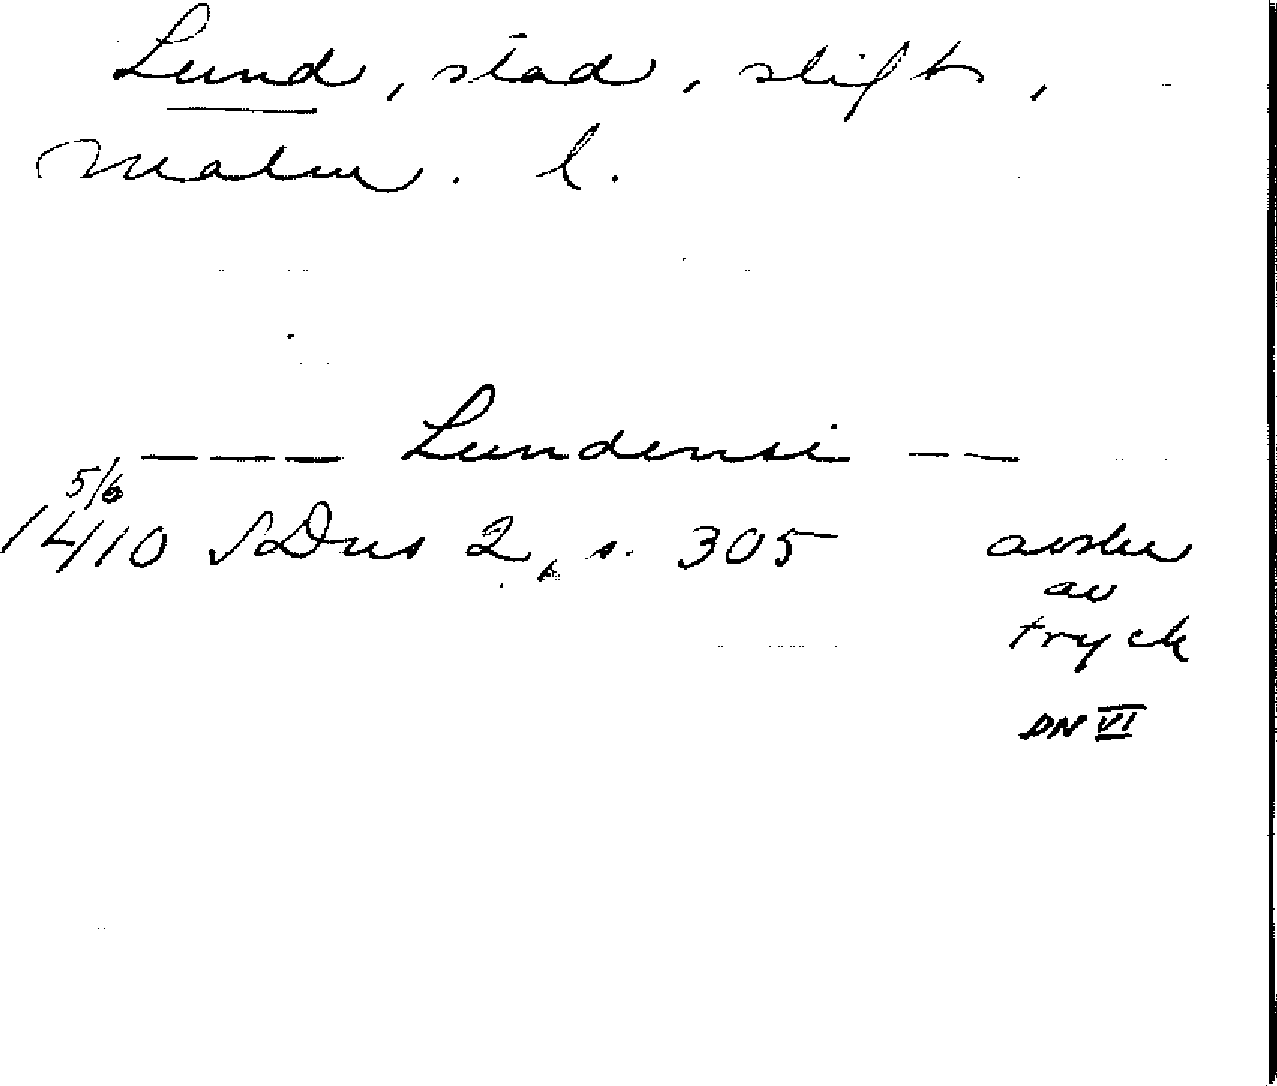 Lund, stad, stift,
Malm. l.
— — — Lundensi — —
5/6
1410 SDns 2, s. 305 avskr
av
tryck
DN VI